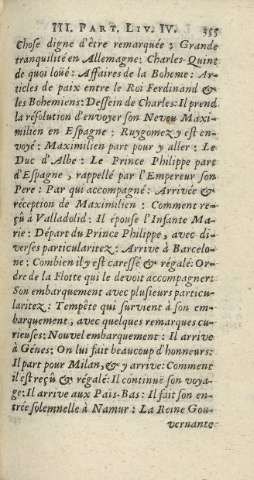 III. PART. LIV. IV. 355
Chose digne d'être remarquée : Grande
tranquilité en Allemagne: Charles-Quint
de quoi loüé: Affaires de la Boheme: Ar-
ticles de paix entre le Roi Ferdinand &
les Bohemiens: Dessein de Charles: Il prend
la résolution d'envoyer son Neveu Maxi-
milien en Espagne : Ruygomez y est en-
voyé : Maximilien part pour y aller : Le
Duc d'Albe : Le Prince Philippe part
d'Espagne , rappellé par l'Empereur son
Pere : Par qui accompagné : Arrivée &
réception de Maximilien : Comment re-
çû à Valladolid : Il épouse l'Infante Ma-
rie : Départ du Prince Philippe, avec di-
verses particularitez : Arrive à Barcelo-
ne : Combien il y est caressé & régalé: Or-
dre de la Flotte qui le devoit accompagner:
Son embarquement avec plusieurs particu-
laritez : Tempête qui survient à son em-
barquement, avec quelques remarques cu-
rieuses: Nouvel embarquement : Il arrive
à Génes: On lui fait beaucoup d'honneurs:
Il part pour Milan, & y arrive: Comment
il est reçû & régalé: Il continuë son voya-
ge: Il arrive aux Païs-Bas: Il fait son en-
trée solemnelle à Namur : La Reine Gou-
vernante